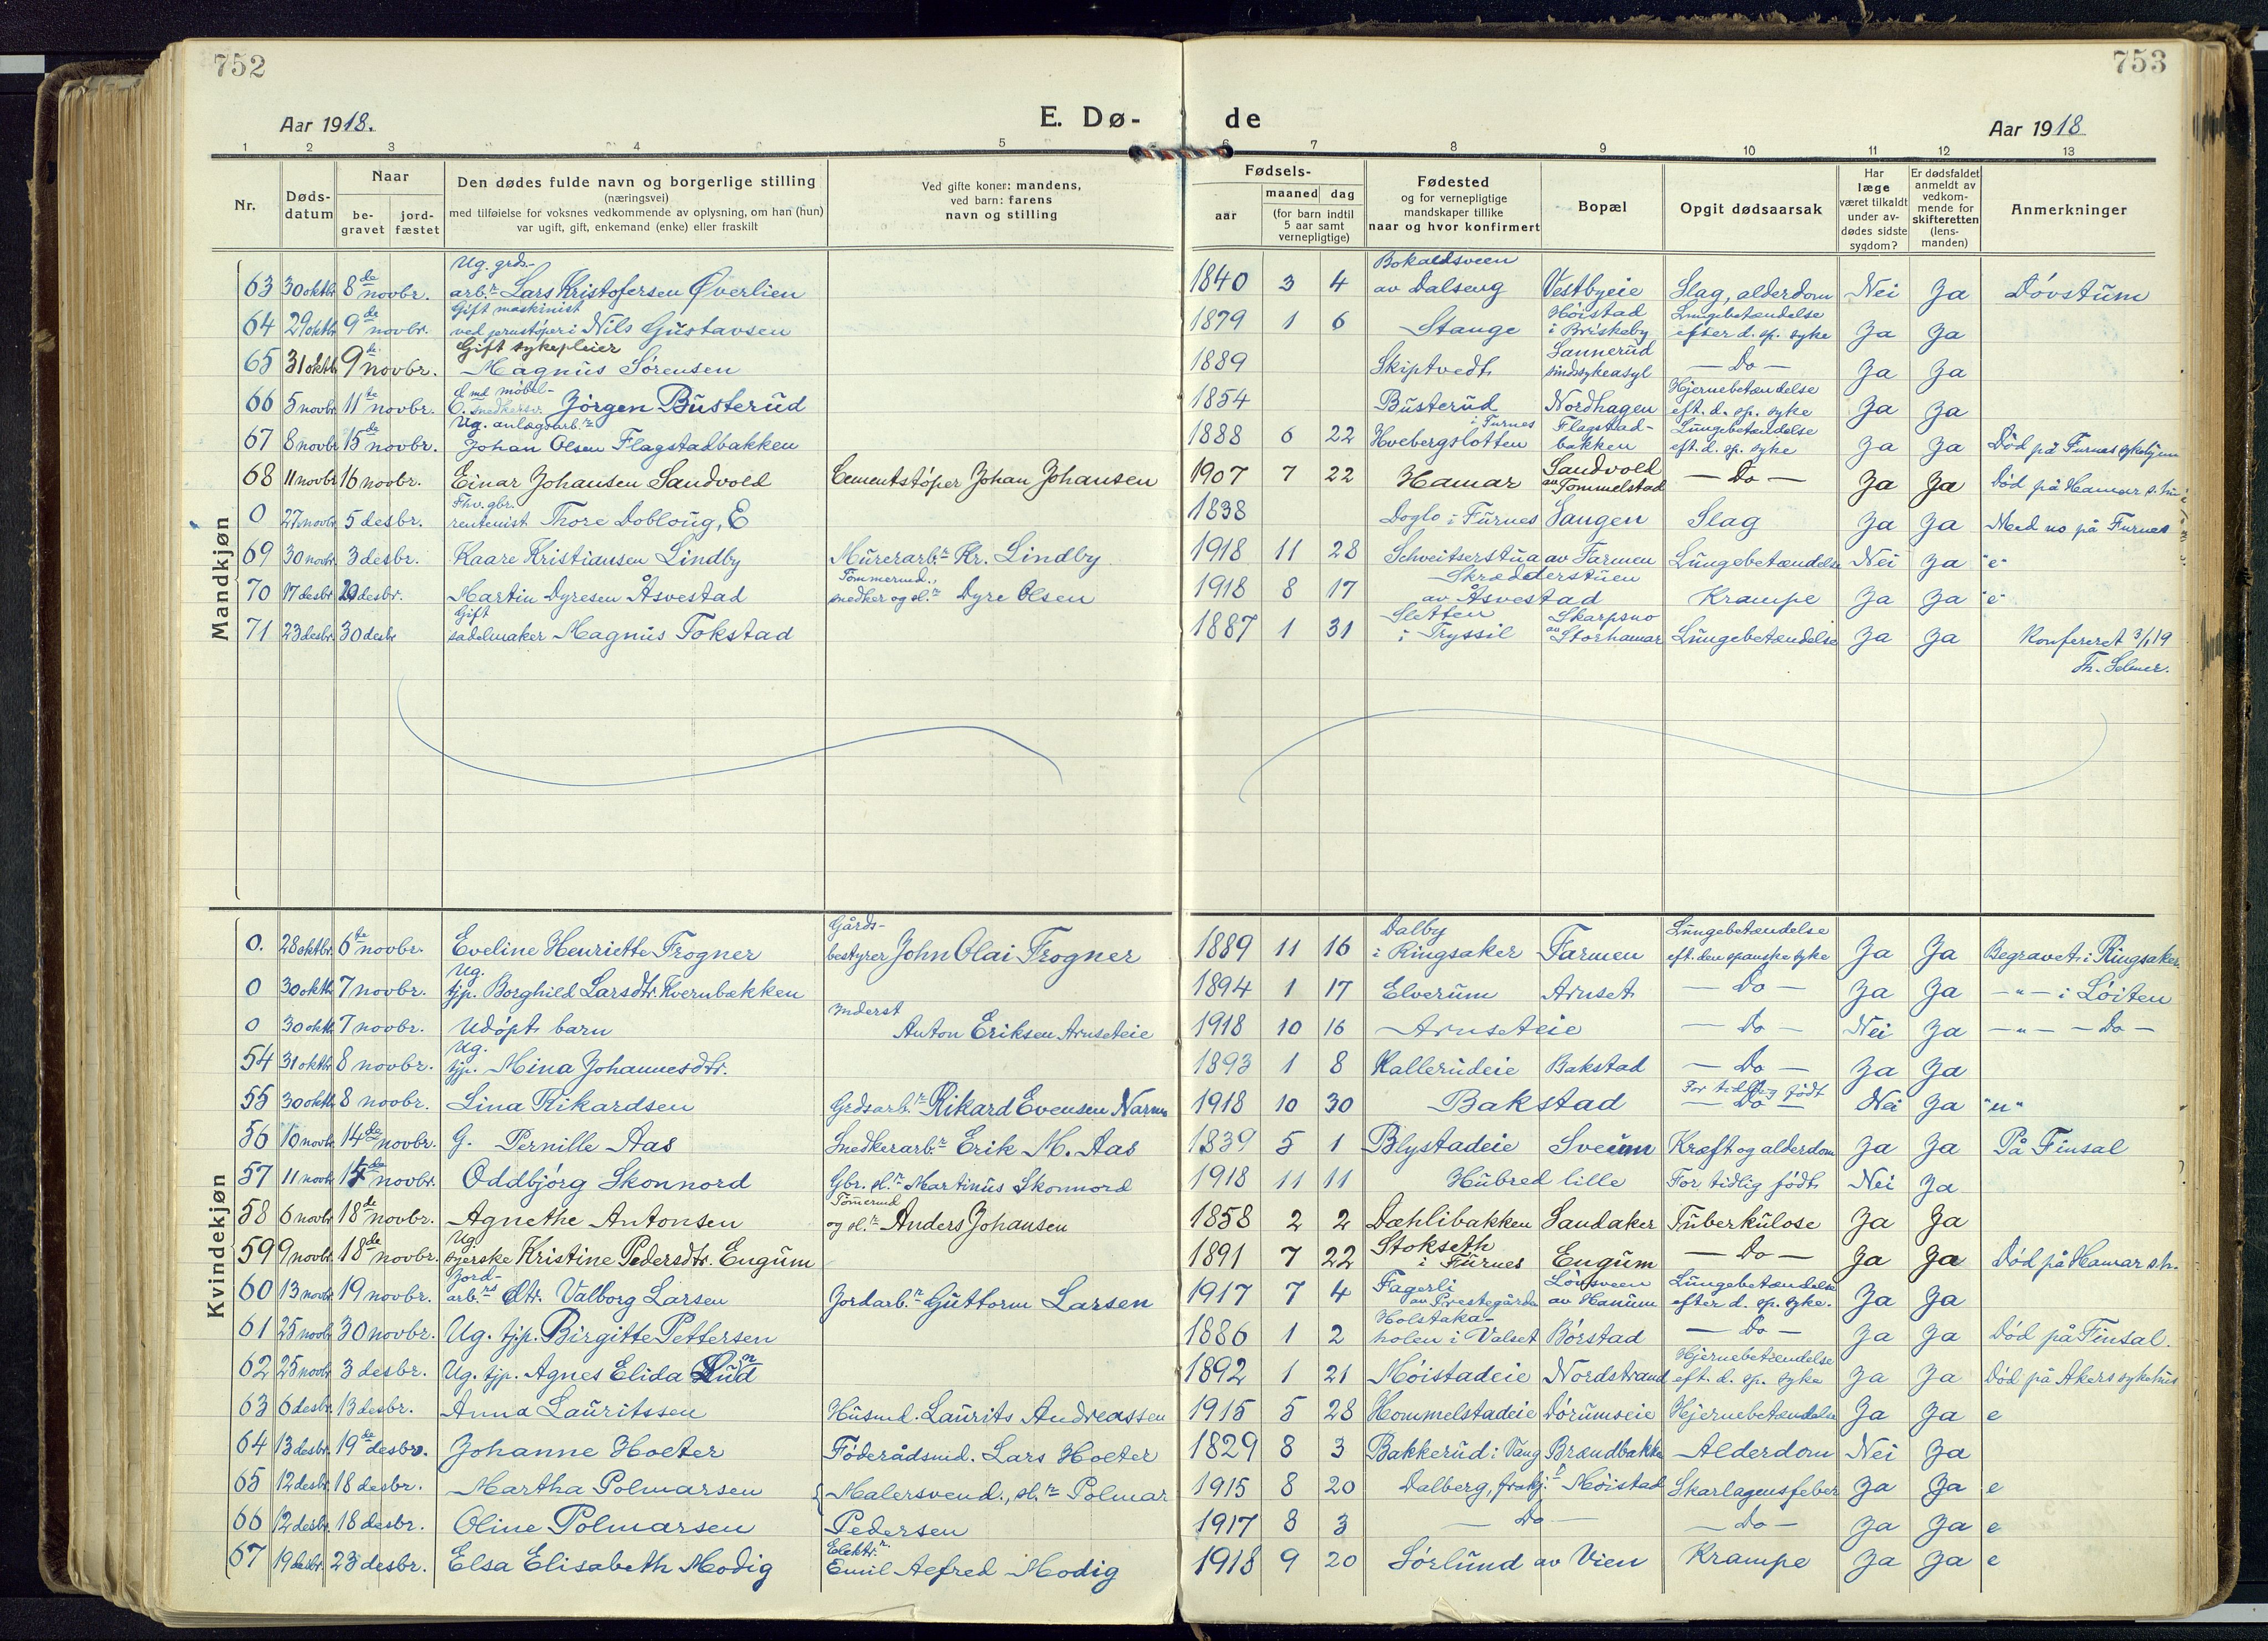 752
753
Aar 1918.
E. Dø-
de
Aar 1918
1 2 3 4 5 6 7 8 9 10 11 12 13
Nr.
Døds-
datum
Naar
be-
gravet
jord-
fæstet
Den dødes fulde navn og borgerlige stilling
(næringsvei)
med tilføielse for voksnes vedkommende av oplysning, om han (hun)
var ugift, gift, enkemand (enke) eller fraskilt
Ved gifte koner: mandens,
ved barn: farens
navn og stilling
Fødsels-
aar
maaned
dag
(for barn indtil
5 aar samt
vernepligtige)
Fødested
og for vernepligtige
mandskaper tillike
naar og hvor konfirmert
Bopæl
Opgit dødsaarsak
Har
læge
været tilkaldt
under av-
dødes sidste
sygdom?
Er dødsfaldet
anmeldt av
vedkom-
mende for
skifteretten
(lens-
manden)
Anmerkninger
Mandkjøn
Ug. grds- Bokaldsveen
63 30 oktbr 8de novbr. arbr. Lars Kristofersen Øverlien 1840 3 4 av Dalseng Vestbyeie Slag, alderdom Nei Ja Døvstum
Gift maskinist Høistad Lungebetændelse
64 29 oktbr 9de novbr. ved jernstøperi Nils Gustavsen 1879 1 6 Stange i Briskeby efter d. sp. syke Ja Ja
Gift sykepleier Sannerud
65 31 oktbr 9de novbr. Magnus Sørensen 1889 Skiptvedt sindssykeasyl — Do — Ja Ja
Emd møbel- Hjernebetændelse
66 5 novbr 11te novbr. snedkersv. Jørgen Busterud 1854 Busterud Nordhagen eft. d. sp. syke Ja Ja
Ug. anlægsarbr i Furnes Flagstad- Lungebetændelse
67 8 novbr 15de novbr. Johan Olsen Flagstadbakken 1888 6 22 Hvebergslotten bakken eft. d. sp. syke Ja Ja Død på Furnes sykehjem
Sandvold
68 11 novbr 16 novbr. Einar Johansen Sandvold Cementstøper Johan Johansen 1907 7 22 Hamar av Tommelstad — Do — Ja Ja Død på Hamar
Fhv. gbr.
0 27 novbr 5 desbr. rentenist Thore Dobloug, E 1838 Doglo i Furnes Sangen Slag Ja Ja Med no på Furnes
69 30 novbr 3 desbr. Kaare Kristiansen Lindby Murerarbr. Kr. Lindby 1918 11 28 Schweitserstua av Farmen Lungebetændelse Nei Ja "e"
Tømmermd., Skrædderstuen
70 17 desbr 20 desbr. Martin Dyresen Åsvestad snedker og sl.r Dyre Olsen 1918 8 17 av Åsvestad Krampe Ja Ja "e"
Gift Sletten Skarpsno
71 23 desbr. 30 desbr sadelmaker Magnus Tokstad 1887 1 31 i Tryssil av Storhamar Lungebetændelse Ja Ja Konfereret 3/1 19
Th. Selmer.
Kvindekjøn
Gårds- Dalby Lungebetændelse
0. 28 oktbr. 6te novbr. Eveline Henriette Frogner bestyrer John Olai Frogner 1889 11 16 i Ringsaker Farmen eft. den spanske syke Ja Ja Begravet i Ringsaker
Ug.
0 30 oktb 7 novbr. tjp. Borghild Larsdtr. Kvernbækken 1894 1 17 Elverum Arnset — Do — Ja Ja —"— i Løiten
Inderst
0 30 oktb 7 novbr. Udøpt barn Anton Eriksen Arnseteie 1918 10 16 Arnseteie — Do — Nei Ja —"— — Do —
Ug.
54 31 oktbr 8 novbr. tjp. Mina Johannesdtr. 1893 1 8 Kallerudeie Bakstad — Do — Ja Ja
For tidlig født
55 30 oktb 8 novbr. Lina Rikardsen Grdsarb.r Rikard Evensen Narum 1918 10 30 Bakstad — Do — Nei Ja "u"
56 10 novbr 14de novbr. G. Pernille Aas Snedkerarbr. Erik M. Aas 1839 5 1 Blystadeie Sveum Kræft og alderdom Ja Ja På Finsal
57 11 novb 15de novbr. Oddbjørg Skonnord Gbr. sl.r Martinus Skonnord 1918 11 11 Hubred lille For tidlig født Nei Ja
Tømermd
58 6 novbr 18de novbr. Agnethe Antonsen og sl.r Anders Johansen 1858 2 2 Dæhlibakken Sandaker Tuberkulose Ja Ja
Ug. Stokseth
59 9 novbr 18de novbr. syerske Kristine Pedersdtr. Engum 1891 7 22 i Furnes Engum — Do — Ja Ja Død på Hamar sh.
Jord- Fagerli Løvsveen Lungebetændelse
60 13 novbr 19 novbr. arb.rs dtr. Valborg Larsen Jordarb.r Guttorm Larsen 1917 7 4 av Prestegården av Hanum efter d. sp. syke. Ja Ja
Holstaka-
61 25 novbr 30 novbr. Ug. tjp. Birgitte Pettersen 1886 1 2 holen i Valset Børstad — Do — Ja Ja Død på Finsal.
Hjernebetændelse
62 25 novbr 3 desbr. Ug. tjp. Agnes Elida Lund 1892 1 21 Møistadeie Nordstrand eft. d. sp. syke Ja Ja Død på Akers sykehus
63 6 desbr. 13 desbr. Anna Lauritssen Husmd. Laurits Andreassen 1915 5 28 Hommelstadeie Dørumseie Hjernebetændelse Ja Ja e
64 13 desbr. 19de desbr. Johanne Hoeter Føderådsmd. Lars Hoeter 1829 8 3 Bakkerud i Vang Brændbakke Alderdom Nei Ja
65 12 desbr. 18 desbr. Martha Polmarsen Malersvend., sl.r Polmar 1915 8 20 Dalberg, frakj. Møistad Skarlagensfeber Ja Ja e
66 12 desbr. 18 desbr. Oline Polmarsen Pedersen 1917 8 3 — Do — — Do — Ja Ja e
Elektr.r
67 19 desbr. 23 desbr. Elsa Elisabeth Modig Emil Alfred Modig 1918 9 20 Sørlund av Vien Krampe Ja Ja e